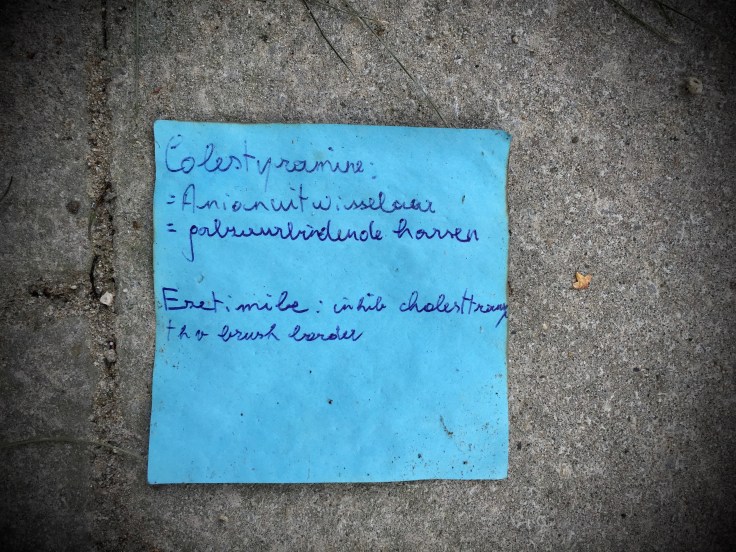 Colestyramine:
= Anionuitwisselaar
= galzuurbindende harsen
Ezetimibe: inhib cholesttransp
thv brush border